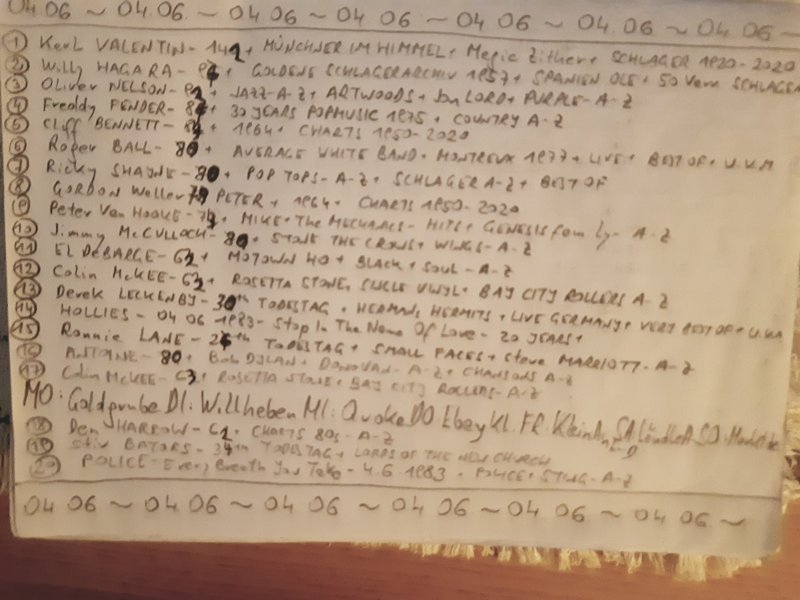 04 06 ~ 04 06. ~ 04 06 ~ 04 06 ~ 04 06 ~ 04. 06 ~ 04 06 ~
① Karl VALENTIN - 142 + MÜNCHNER IM HIMMEL + Magic Zither + SCHLAGER 1920 - 2020
② Willy HAGARA - + GOLDENE SCHLAGERARCHIV 1957 + SPANIEN OLE + 50 Verk SCHLAGER
③ Oliver NELSON - 92 + JAZZ - A-Z + ARTWOODS + Jon LORD + PURPLE - A-Z
④ Freddy FENDER - + 30 YEARS POPMUSIC 1975 + COUNTRY A-Z
⑤ Cliff BENNETT - + 1964 + CHARTS 1950 - 2020
⑥ Roger BALL - 80 + AVERAGE WHITE BAND + MONTREUX 1977 + LIVE + BEST OF + U.V.M
⑦ Ricky SHAYNE - 80 + POP TOPS - A-Z + SCHLAGER A-Z + BEST OF
⑧ GORDON Waller PETER + 1964 + CHARTS 1950 - 2020
⑨ Peter Van HOOKE - + MIKE + The MECHANICS - HITS + GENESIS family - A-Z
⑩ Jimmy McCULLOCH - + STONE THE CROWS + WINGS - A-Z
⑪ EL DEBARGE - 62 + MOTOWN 40 + BLACK + SOUL - A-Z
⑫ Colin McKEE - 62 + ROSETTA STONE, VINYL + BAY CITY ROLLERS A-Z
⑬ Derek LECKENBY - 30th TODESTAG + HERMANS HERMITS + LIVE GERMANY + VERY BEST OF +
⑭ HOLLIES - 04 06 1983 - Stop In The Name Of Love - 20 YEARS +
⑮ Ronnie LANE - TODESTAG + SMALL FACES + Steve MARRIOTT - A-Z
⑯ ANTOINE - 80 + Bob DYLAN + DONOVAN - A-Z + CHANSONS A-Z
⑰ Colin McKEE - 63 + ROSETTA STONE + BAY CITY ROLLERS - A-Z
MO: Goldgrube DI: Willhaben MI: Quoka DO Ebay Kl. FR. KleinAnz SA SO
⑱ Den HARROW - 62 + CHARTS 80s - A-Z
⑲ Stiv BATORS - 34th TODESTAG + LORDS OF THE NEW CHURCH
⑳ POLICE - Every Breath You Take - 4.6 1983 + POLICE + STING - A-Z
04 06 ~ 04 06 ~ 04 06 ~ 04 06 ~ 04 06 ~ 04 06 ~